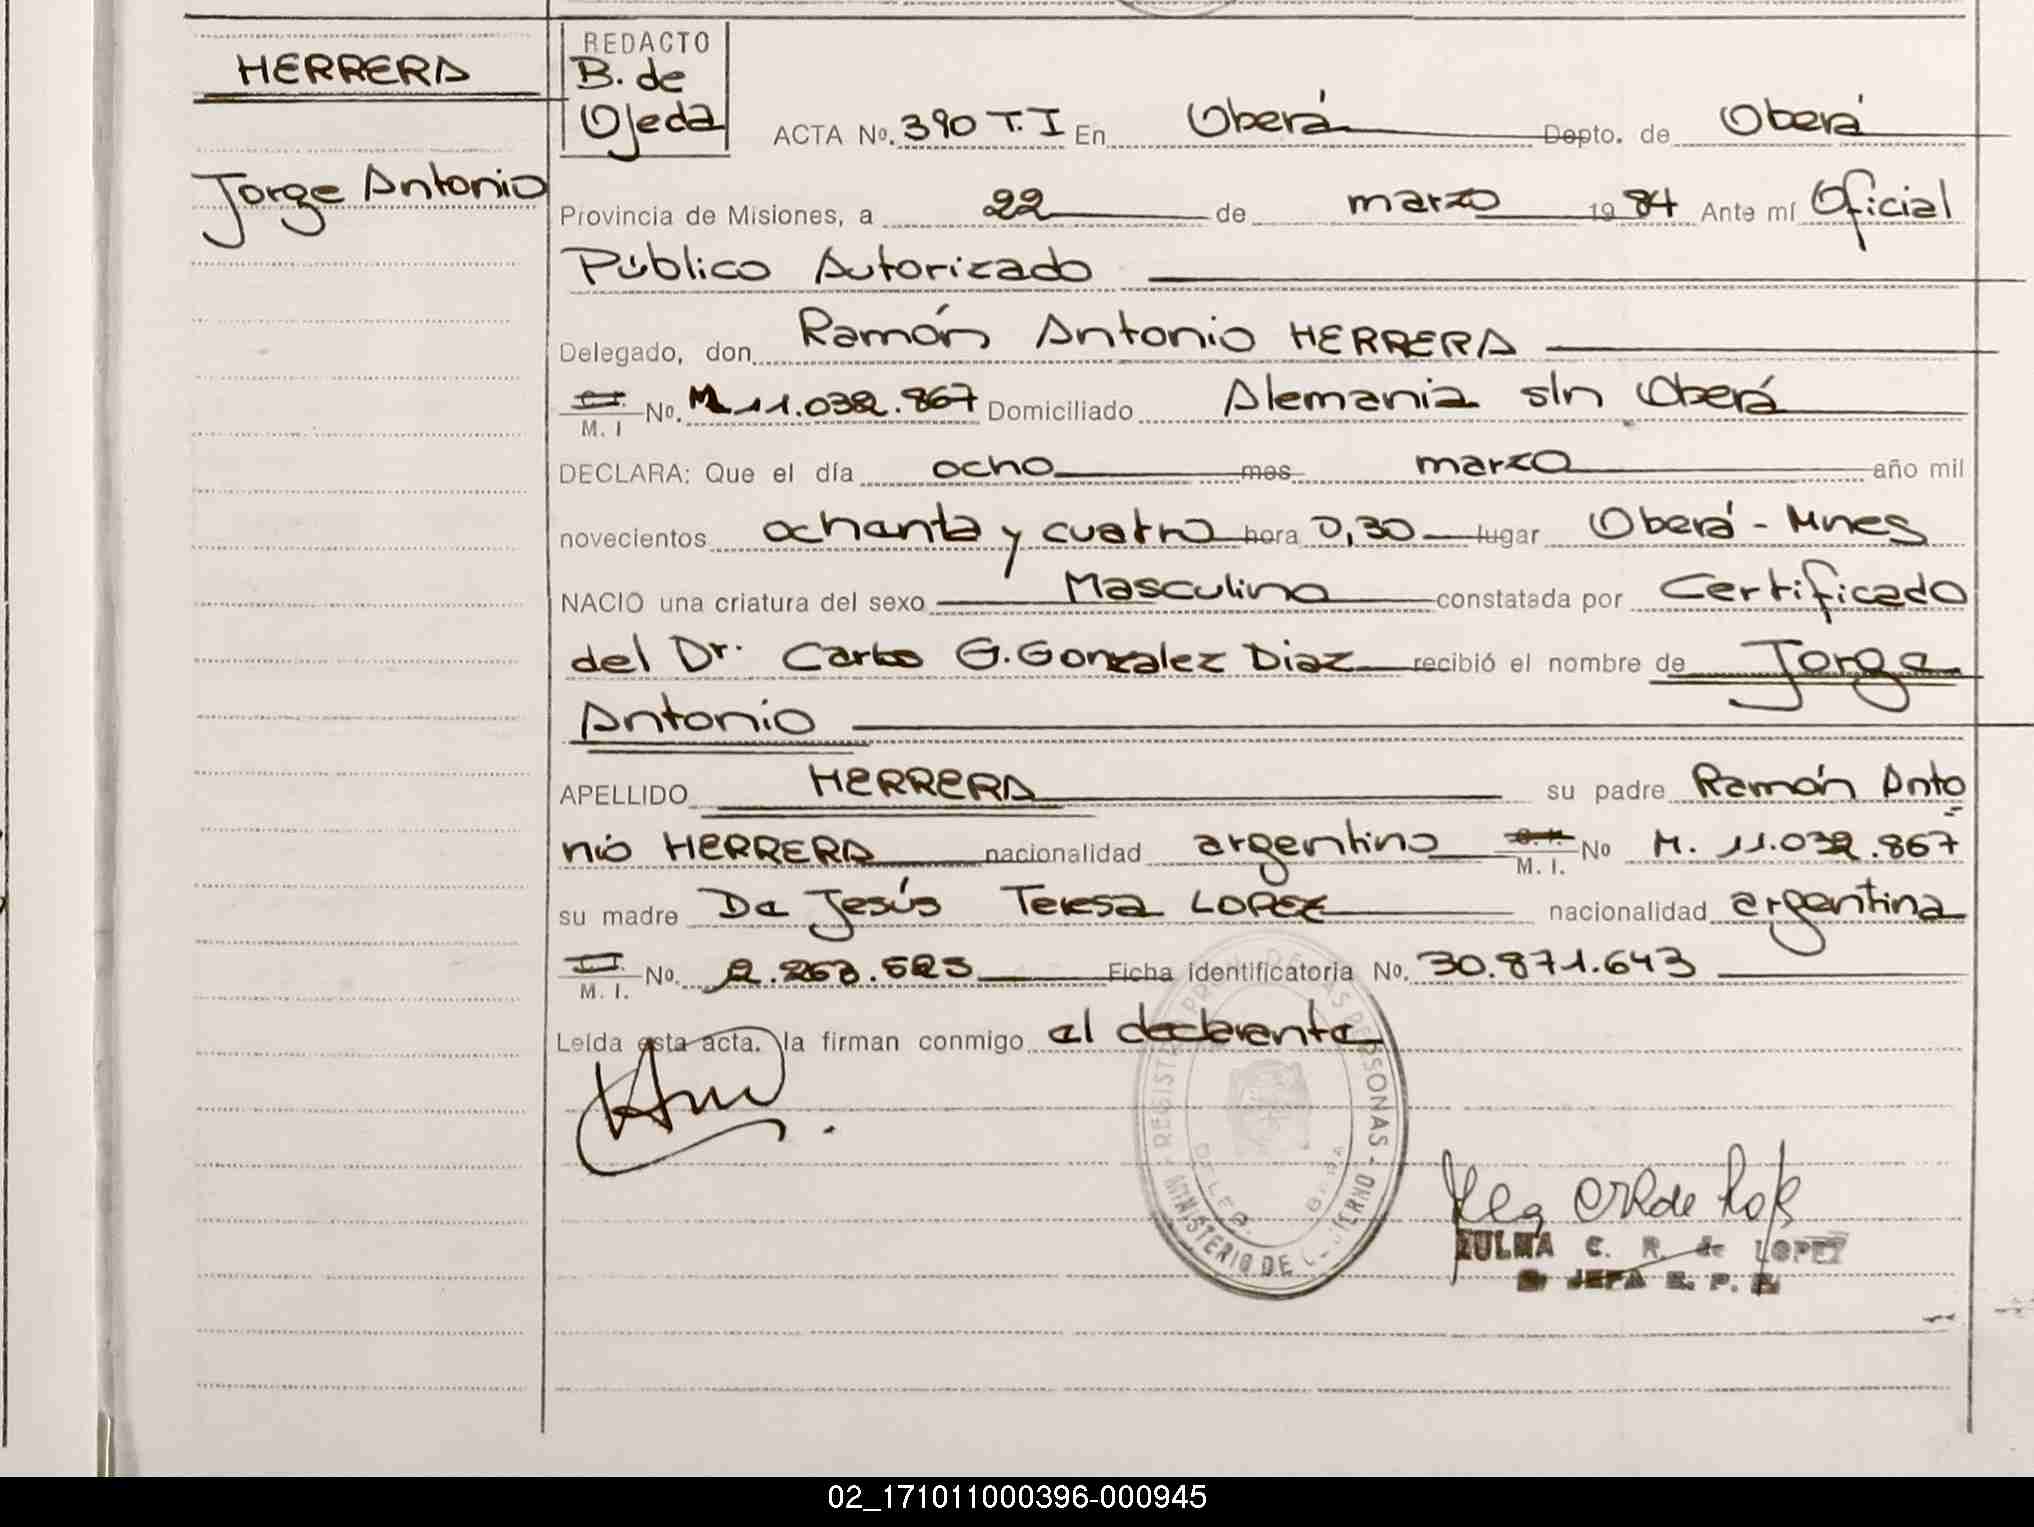 HERRERA
Jorge Antonio
REDACTO
B. de
Ojeda
ACTA No. 390 T.I En Oberá Depto. de Oberá
Provincia de Misiones, a 22 de marzo 1984 Ante mí Oficial
Público Autorizado
Delegado, don Ramón Antonio HERRERA
M. I No. M 11.032.867 Domiciliado Alemania s/n Oberá
DECLARA: Que el día ocho mes marzo año mil
novecientos ochenta y cuatro hora 0,30 lugar Oberá - Mnes
NACIO una criatura del sexo Masculino constatada por Certificado
del Dr. Carlos G. Gonzalez Diaz recibió el nombre de Jorge
Antonio
APELLIDO HERRERA su padre Ramón Anto
nio HERRERA nacionalidad argentino M. I. No M. 11.032.867
su madre De Jesús Teresa LOPEZ nacionalidad argentina
M. I. No. Ficha identificatoria No. 30.871.643
Leída esta acta. la firman conmigo el declarante
REGIST PROV. DE LAS PERSONAS
MINISTERIO DE GOBIERNO
ZULMA C. R. de LOPEZ
JEFA
02_171011000396-000945